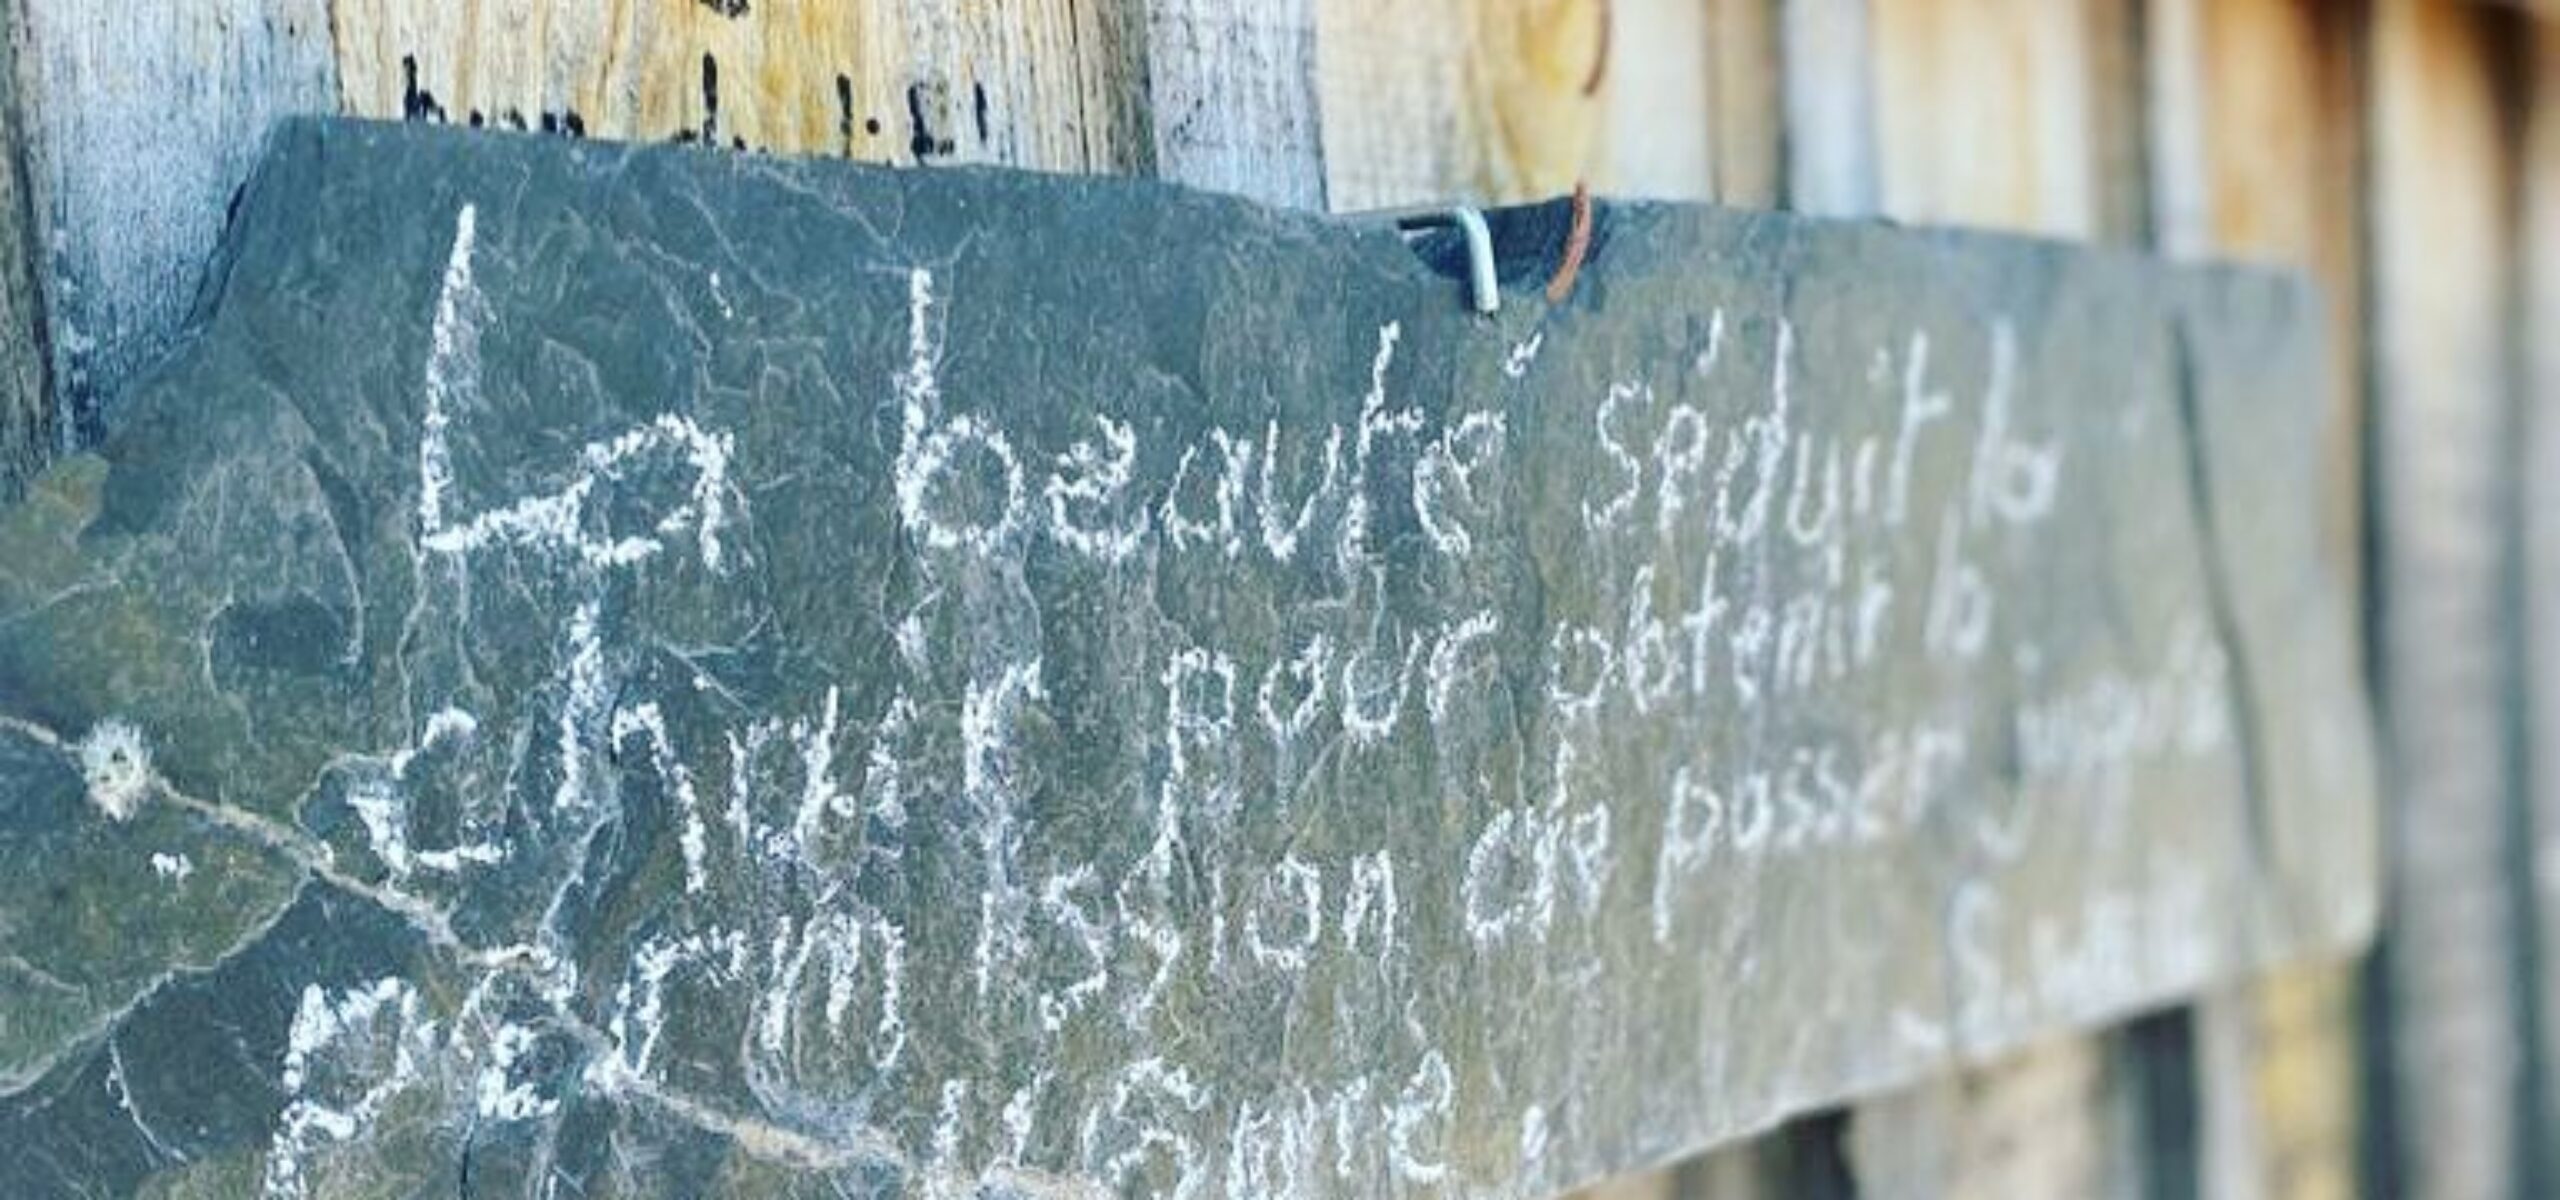 La beauté séduit la
chair pour obtenir la
permission de passer
l'âme.